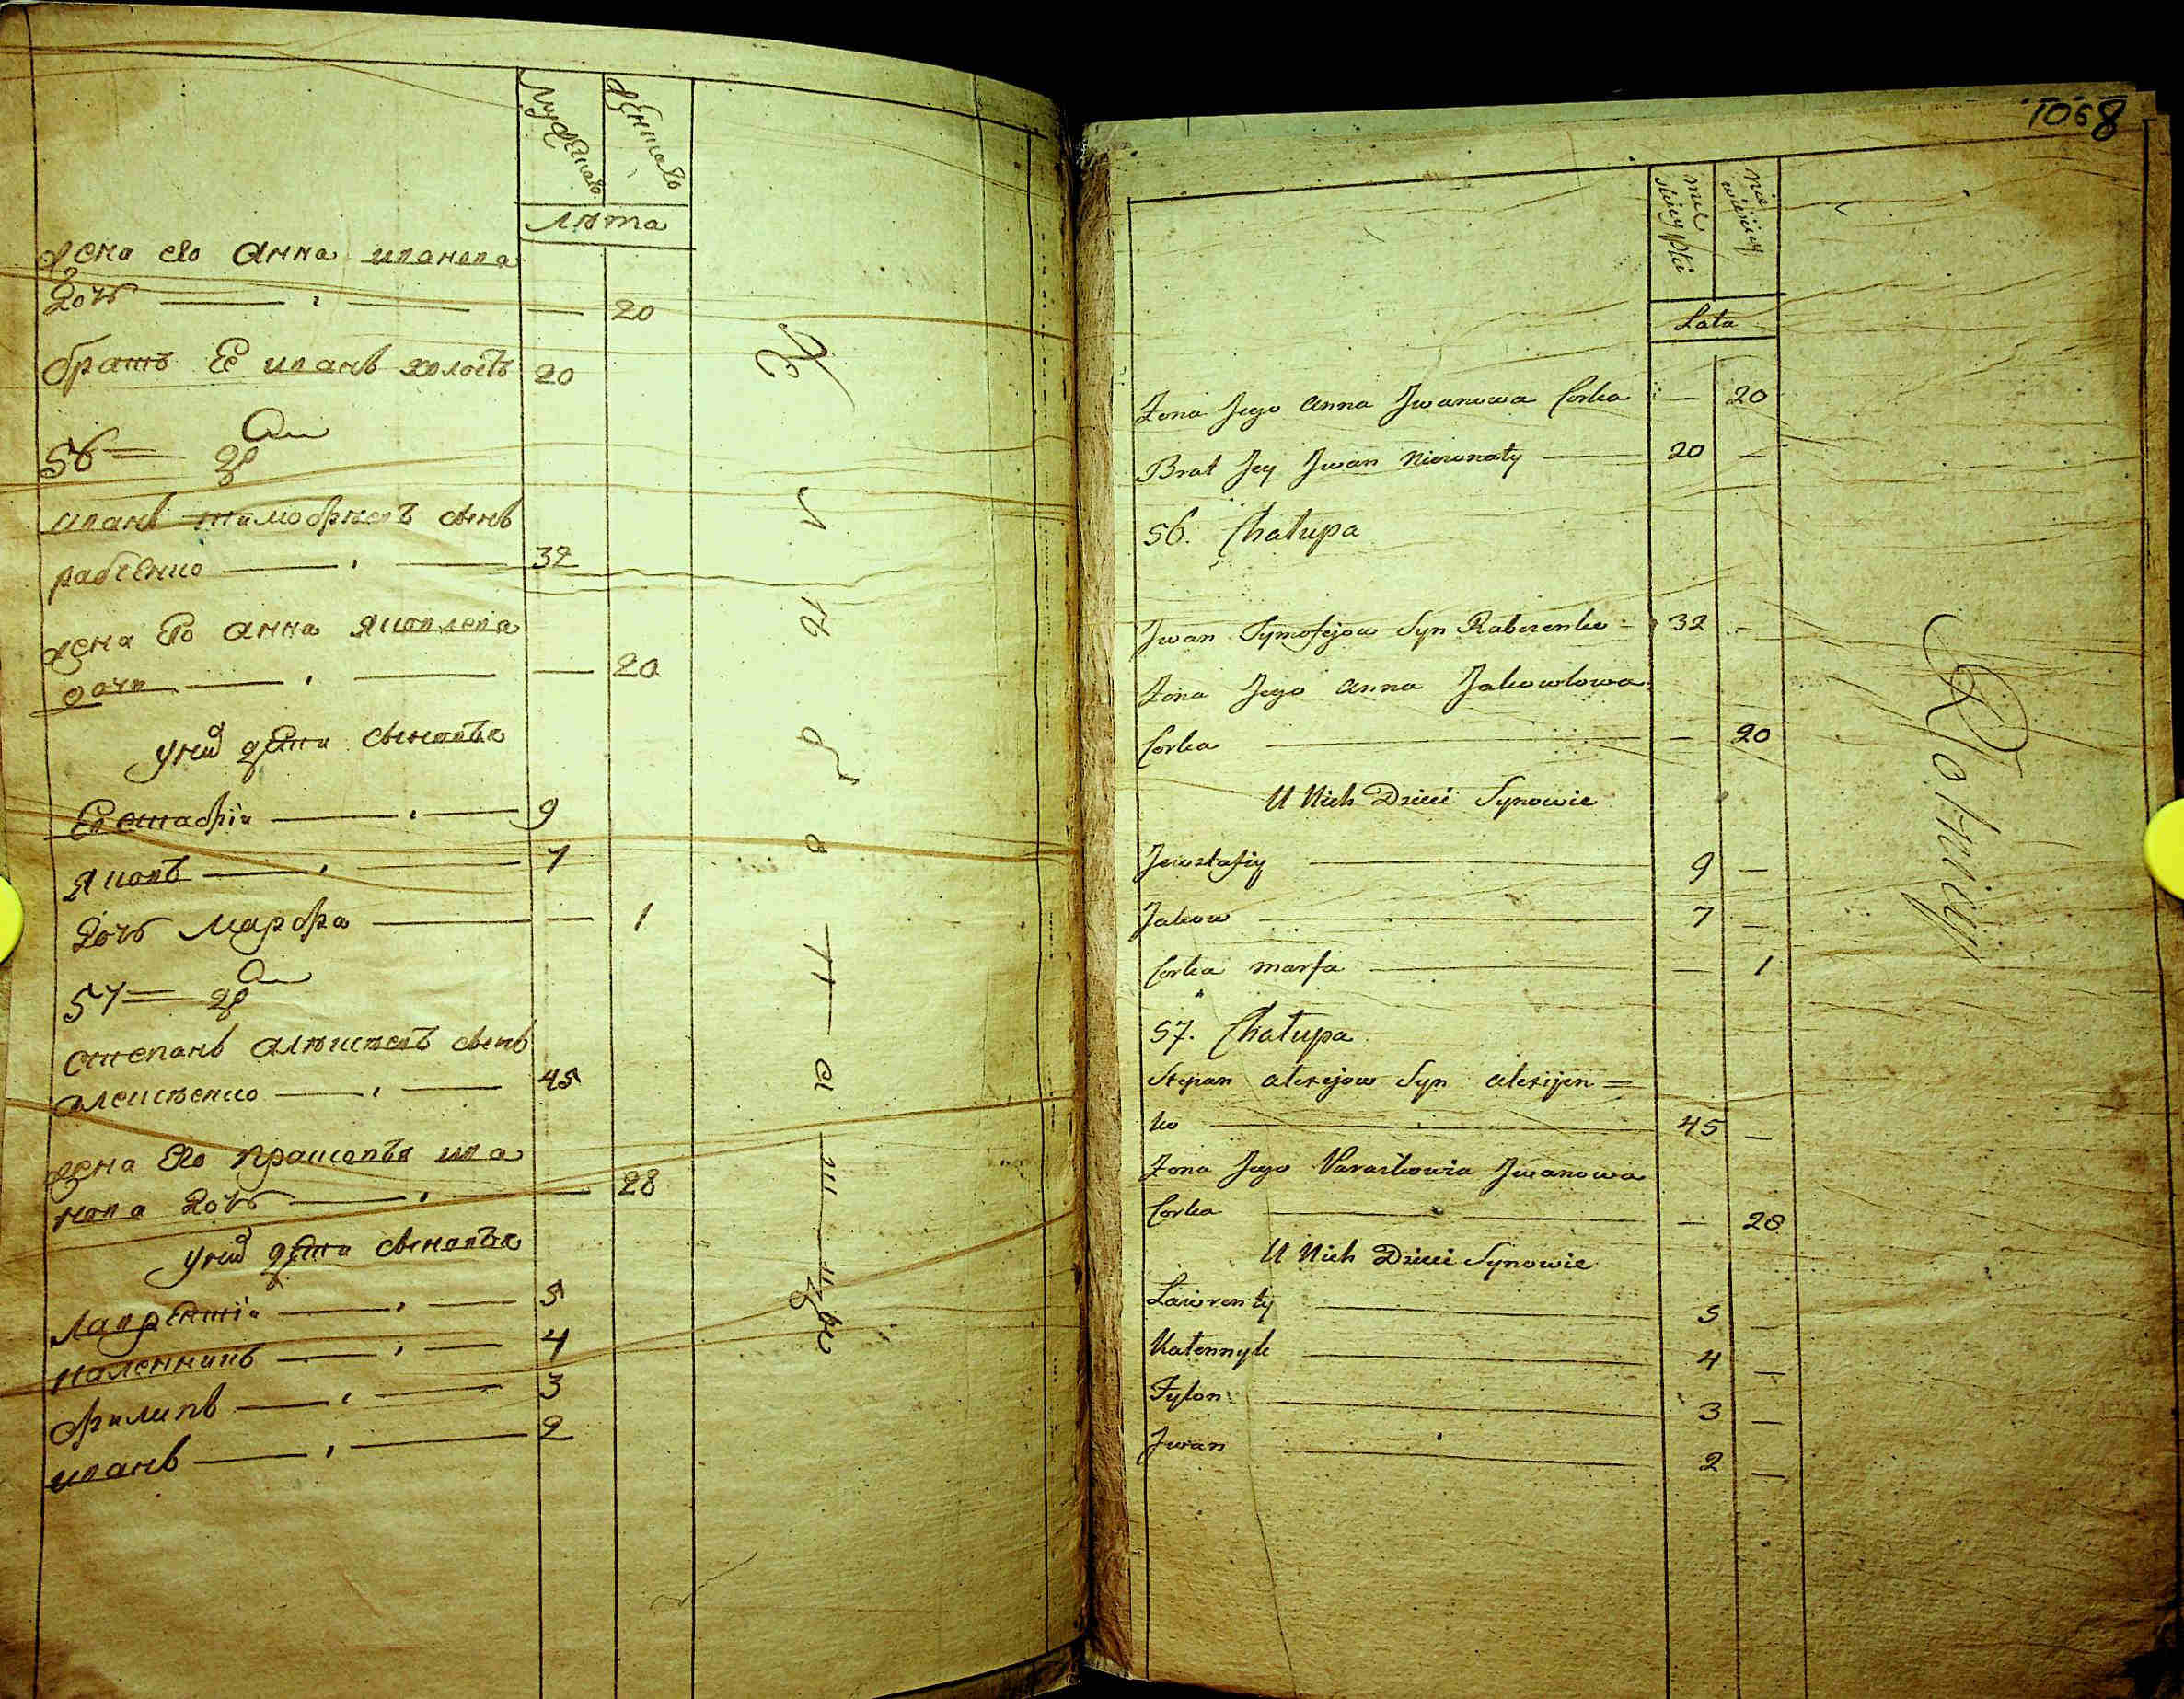 Мужеска Женска
Лѣта
жена его Анна иванова
дочь — — — 20
братъ Ее иванъ холостъ 20
56 = Дво
иванъ тимофѣевъ сынъ
рабченко — — 32
жена Его анна Яковлева
дочь — — — 20
у них дети сыновья
Евстафіи — — 9
Яковъ — — 7
Дочь Марфа — — 1
57 = Дво
степанъ алѣксѣевъ сынъ
алексѣенко — — 45
жена Его прасковья ива
нова дочь — — — 28
у них дети сыновья
лаврентіи — — 5
каленникъ — — 4
филипъ — — 3
иванъ — — 2
1068
męskiey płci
niewieściey
Lata
Żona Jego Anna Jwanowa Corka — 20
Brat Jey Jwan Nieżonaty — 20 —
56. Chałupa
Jwan Tymofejow Syn Rabczenko 32 —
Żona Jego Anna Jakowlowa
Corka — — 20
U Nich Dzieci Synowie
Jewstafiy — 9 —
Jakow — 7 —
Corka Marfa — — 1
57. Chałupa
Stepan Alexejow Syn Alexijen =
ko — 45 —
Żona Jego Paraskowia Jwanowa
Corka — — 28
U Nich Dzieci Synowie
Ławrenty — 5 —
Kalennyk — 4 —
Fylon — 3 —
Jwan — 2 —